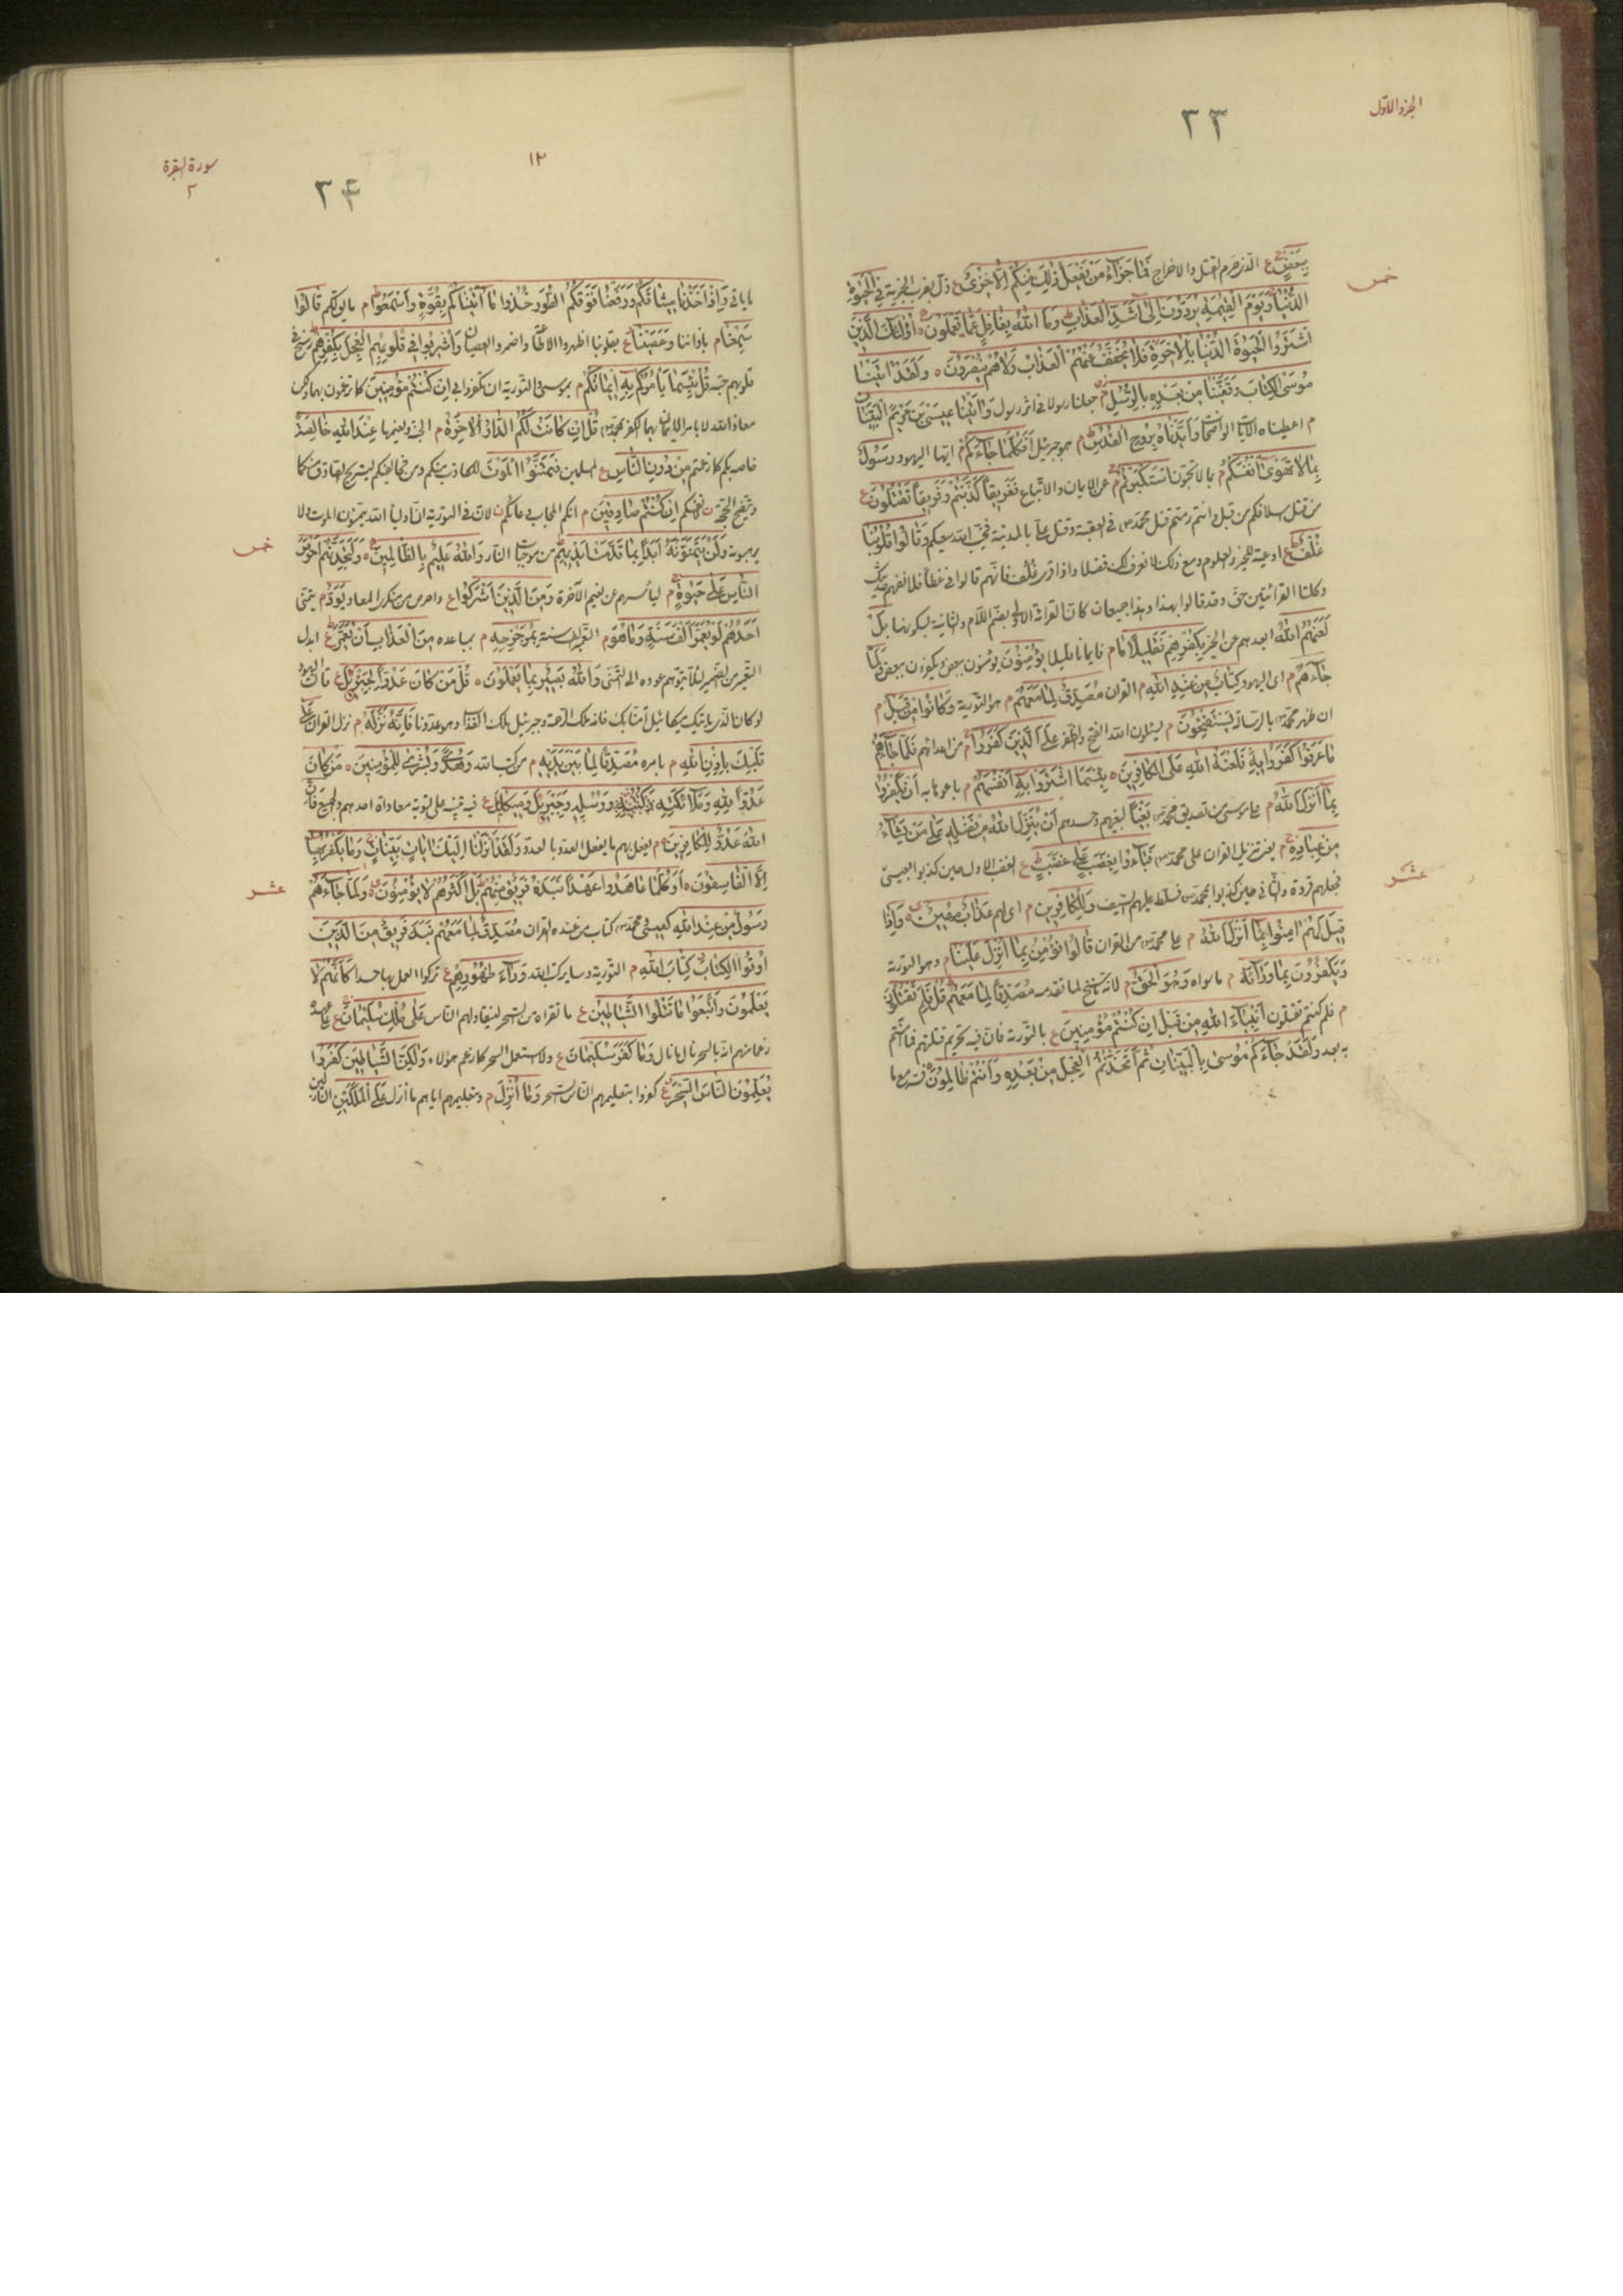 الجزء الأول
٢٣
خمس
بِبَعْضٍ ع الذى حرم القتل والاخراج فَمَا جَزَآءُ مَنْ يَفْعَلُ ذٰلِكَ مِنْكُمْ اِلَّا خِزْىٌ ع ذل بضرب الجزية فِى الْحَيٰوةِ
الدُّنْيَا وَيَوْمَ الْقِيٰمَةِ يُرَدُّونَ اِلٰى اَشَدِّ الْعَذَابِ وَمَا اللّٰهُ بِغَافِلٍ عَمَّا تَعْمَلُونَ اُولٰئِكَ الَّذِينَ
اشْتَرَوُا الْحَيٰوةَ الدُّنْيَا بِالْاٰخِرَةِ فَلَا يُخَفَّفُ عَنْهُمُ الْعَذَابُ وَلَا هُمْ يُنْصَرُونَ وَلَقَدْ اٰتَيْنَا
مُوسَى الْكِتَابَ وَقَفَّيْنَا مِنْ بَعْدِهِ بِالرُّسُلِ م جعلنا رسولا فى اثر رسول وَاٰتَيْنَا عِيسَى بْنَ مَرْيَمَ الْبَيِّنَاتِ
م اعطيناه الآيات الواضحات وَاَيَّدْنَاهُ بِرُوحِ الْقُدُسِ م هو جبرئيل اَفَكُلَّمَا جَآءَكُمْ م ايها اليهود رَسُولٌ
بِمَا لَا تَهْوٰى اَنْفُسُكُمُ م بما لا تحبون اسْتَكْبَرْتُمْ م عن الايمان والاتباع فَفَرِيقاً كَذَّبْتُمْ وَفَرِيقاً تَقْتُلُونَ ع
من قتل اسلافكم من قبل وانتم رمتم قتل محمد ص فى العقبة وقتل على بالمدينة فخيب الله سعيكم وَقَالُوا قُلُوبُنَا
غُلْفٌ ع اوعية للخير والعلوم ومع ذلك لا نعرف لك فضلا واذا قرئ غلف فانهم قالوا فى غطاء فلا نفهم حديثك
وكلتا القرائتين حق وقد قالوا بهذا وبهذا جميعا كانت القرائة الاولى بضم اللام والثانية بسكونها بَلْ
لَعَنَهُمُ اللّٰهُ ابعدهم عن الخير بِكُفْرِهِمْ فَقَلِيلاً مَا م فايمانا قليلا يُؤْمِنُونَ يؤمنون ببعض ويكفرون ببعض وَلَمَّا
جَآءَهُمْ م اى اليهود كِتَابٌ مِنْ عِنْدِ اللّٰهِ م القران مُصَدِّقٌ لِمَا مَعَهُمْ م هو التورية وَكَانُوا مِنْ قَبْلُ م
ان ظهر محمد ص بالرسالة يَسْتَفْتِحُونَ م يسئلون الله الفتح والظفر عَلَى الَّذِينَ كَفَرُوا م من اعدائهم فَلَمَّا جَآءَهُمْ
مَا عَرَفُوا كَفَرُوا بِهِ فَلَعْنَةُ اللّٰهِ عَلَى الْكَافِرِينَ بِئْسَمَا اشْتَرَوْا بِهِ اَنْفُسَهُمْ م باعوها به اَنْ يَكْفُرُوا
بِمَا اَنْزَلَ اللّٰهُ م على موسى من تصديق محمد ص بَغْياً لبغيهم وحسدهم اَنْ يُنَزِّلَ اللّٰهُ مِنْ فَضْلِهِ عَلٰى مَنْ يَشَآءُ
مِنْ عِبَادِهِ م يعنى تنزيل القران على محمد ص فَبَآءُوا بِغَضَبٍ عَلٰى غَضَبٍ ع الغضب الاول حين كذبوا بعيسى
عشر
فجعلهم قردة والثانى حين كذبوا بمحمد ص فسلط عليهم السيف وَلِلْكَافِرِينَ م اى لهم عَذَابٌ مُهِينٌ وَاِذَا
قِيلَ لَهُمْ اٰمِنُوا بِمَا اَنْزَلَ اللّٰهُ م على محمد ص من القران قَالُوا نُؤْمِنُ بِمَا اُنْزِلَ عَلَيْنَا م وهو التورية
وَيَكْفُرُونَ بِمَا وَرَآءَهُ م ما سواه وَهُوَ الْحَقُّ م لانه ناسخ لما تقدمه مُصَدِّقاً لِمَا مَعَهُمْ قُلْ فَلِمَ تَقْتُلُونَ
م فلم كنتم تقتلون اَنْبِيَآءَ اللّٰهِ مِنْ قَبْلُ اِنْ كُنْتُمْ مُؤْمِنِينَ ع بالتورية فان فيه تحريم قتلهم فما آمنتم
به بعد وَلَقَدْ جَآءَكُمْ مُوسٰى بِالْبَيِّنَاتِ ثُمَّ اتَّخَذْتُمُ الْعِجْلَ مِنْ بَعْدِهِ وَاَنْتُمْ ظَالِمُونَ
سورة البقرة
٢
١٢
٢٤
وَاِذْ اَخَذْنَا مِيثَاقَكُمْ وَرَفَعْنَا فَوْقَكُمُ الطُّورَ خُذُوا مَا اٰتَيْنَاكُمْ بِقُوَّةٍ وَاسْمَعُوا م ما يقال لكم قَالُوا
سَمِعْنَا م باذاننا وَعَصَيْنَا ع بقلوبنا اظهروا الطاعة واضمروا العصيان وَاُشْرِبُوا فِى قُلُوبِهِمُ الْعِجْلَ بِكُفْرِهِمْ رسخ فى
قلوبهم حبه قُلْ بِئْسَمَا يَأْمُرُكُمْ بِهِ اِيمَانُكُمْ م بموسى والتورية ان تكفروا بى اِنْ كُنْتُمْ مُؤْمِنِينَ كما تزعمون بهما ولكن
معاذ الله لا يامر الايمان بهما الكفر بمحمد ص قُلْ اِنْ كَانَتْ لَكُمُ الدَّارُ الْاٰخِرَةُ م الجنة ونعيمها عِنْدَ اللّٰهِ خَالِصَةً
خاصة بكم كما زعمتم مِنْ دُونِ النَّاسِ ع المسلمين فَتَمَنَّوُا الْمَوْتَ للكاذب منكم ومن مخالفيكم ليستريح الصادق منكما
وتتضح الحجة اِنْ كُنْتُمْ صَادِقِينَ م انكم المجاب دعائكم لان فى التورية ان اولياء الله يتمنون الموت ولا
خمس
يرهبونه وَلَنْ يَتَمَنَّوْهُ اَبَداً بِمَا قَدَّمَتْ اَيْدِيهِمْ من موجبات النار وَاللّٰهُ عَلِيمٌ بِالظَّالِمِينَ وَلَتَجِدَنَّهُمْ اَحْرَصَ
النَّاسِ عَلٰى حَيٰوةٍ م لياسهم عن نعيم الآخرة وَمِنَ الَّذِينَ اَشْرَكُوا ع واحرص من منكرى المعاد يَوَدُّ م يتمنى
اَحَدُهُمْ لَوْ يُعَمَّرُ اَلْفَ سَنَةٍ وَمَا هُوَ م التعمير الف سنة بِمُزَحْزِحِهِ م بمباعده مِنَ الْعَذَابِ اَنْ يُعَمَّرَ ع ابدل
التعمير من الضمير لئلا يتوهم عوده الى التمنى وَاللّٰهُ بَصِيرٌ بِمَا يَعْمَلُونَ قُلْ مَنْ كَانَ عَدُوّاً لِجِبْرِيلَ ع قالت اليهود
لو كان الذى ياتيك ميكائيل آمنا بك فانه ملك الرحمة وجبرئيل ملك العذاب وهو عدونا فَاِنَّهُ نَزَّلَهُ م نزل القران عَلٰى
قَلْبِكَ بِاِذْنِ اللّٰهِ م بامره مُصَدِّقاً لِمَا بَيْنَ يَدَيْهِ م من كتب الله وَهُدًى وَبُشْرٰى لِلْمُؤْمِنِينَ مَنْ كَانَ
عَدُوّاً لِلّٰهِ وَمَلَآئِكَتِهِ وَرُسُلِهِ وَجِبْرِيلَ وَمِيكَالَ ع فيه تنبيه على تسوية معاداة احدهم والجميع فَاِنَّ
اللّٰهَ عَدُوٌّ لِلْكَافِرِينَ م يفعل بهم ما يفعل العدو بالعدو وَلَقَدْ اَنْزَلْنَا اِلَيْكَ اٰيَاتٍ بَيِّنَاتٍ وَمَا يَكْفُرُ بِهَا
عشر
اِلَّا الْفَاسِقُونَ اَوَكُلَّمَا عَاهَدُوا عَهْداً نَبَذَهُ فَرِيقٌ مِنْهُمْ بَلْ اَكْثَرُهُمْ لَا يُؤْمِنُونَ وَلَمَّا جَآءَهُمْ
رَسُولٌ مِنْ عِنْدِ اللّٰهِ كعيسى ومحمد ص كتاب من عنده القران مُصَدِّقٌ لِمَا مَعَهُمْ نَبَذَ فَرِيقٌ مِنَ الَّذِينَ
اُوتُوا الْكِتَابَ كِتَابَ اللّٰهِ م التورية وساير كتب الله وَرَآءَ ظُهُورِهِمْ ع تركوا العمل بها حسدا كَاَنَّهُمْ لَا
يَعْلَمُونَ وَاتَّبَعُوا مَا تَتْلُوا الشَّيَاطِينُ ع ما تقراه من السحر لينقاد لهم الناس عَلٰى مُلْكِ سُلَيْمَانَ ع على عهده
زعما منهم انه بالسحر نال ما نال وَمَا كَفَرَ سُلَيْمَانُ ع ولا استعمل السحر كما زعم هؤلاء وَلٰكِنَّ الشَّيَاطِينَ كَفَرُوا
يُعَلِّمُونَ النَّاسَ السِّحْرَ ع كفروا بتعليمهم الناس السحر وَمَا اُنْزِلَ م وبتعليمهم اياهم ما انزل عَلَى الْمَلَكَيْنِ